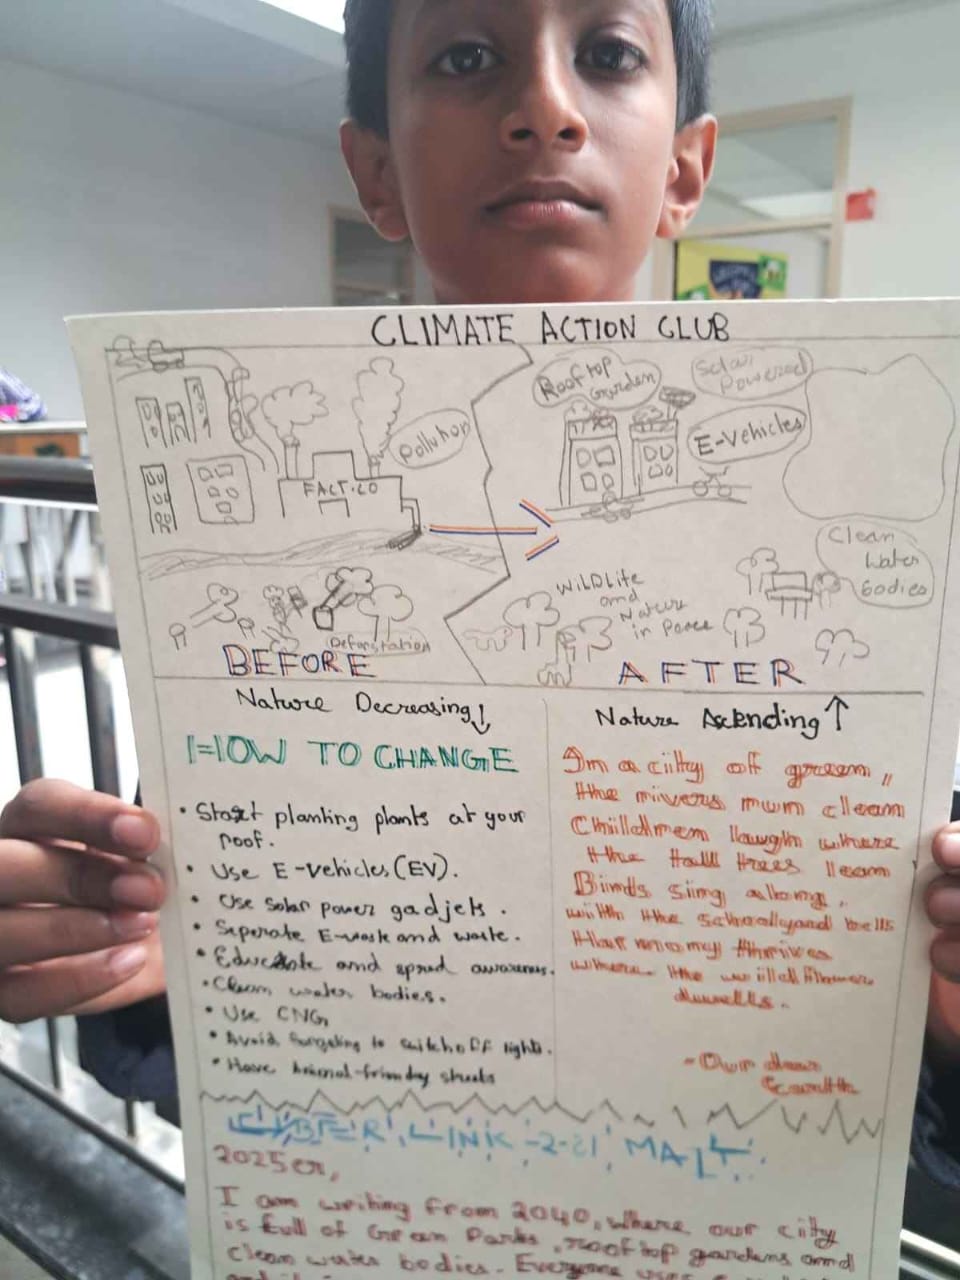 CLIMATE ACTION CLUB
Pollution
FACT.CO
Deforstation
BEFORE
Rooftop
Garden
Solar
Powered
E-Vehicles
Clean
Water
bodies
WILDLIFE
and
Nature
in Peace
AFTER
Nature Decreasing↓
HOW TO CHANGE
• Start planting plants at your
roof.
• Use E-vehicles (EV).
• Use solar power gadjets.
• Seperate E-waste and waste.
• Educate and spread awareness.
• Clean water bodies.
• Use CNG
• Avoid forgeting to switch off lights.
• Have animal-frienday streets
Nature Ascending↑
In a city of green,,
the rivers run clean
Children laugh where
the tall trees lean
Birds sing along,
with the schoolyard bells
that thrives
where the wildflower
dwells.
- Our dear
Earth
CYBER LINK -2-
2025er,
I am writing from 2040, where our city
is full of Green Parks, rooftop gardens and
clean water bodies. Everyone